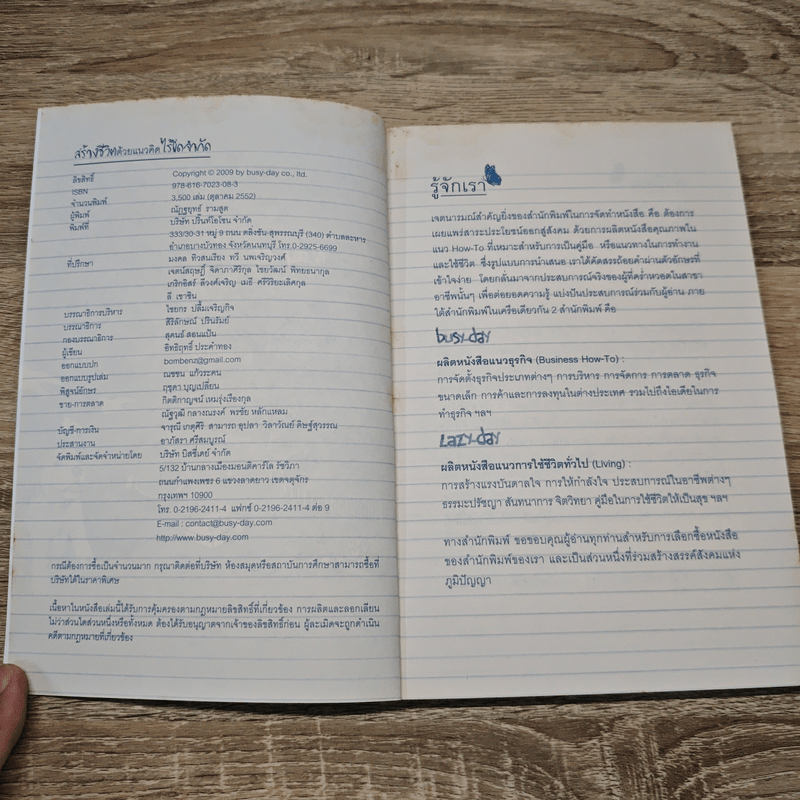 สร้างชีวิตด้วยแนวคิดไร้ขีดจำกัด
ลิขสิทธิ์ Copyright © 2009 by busy-day co., ltd.
ISBN 978-616-7023-08-3
จำนวนพิมพ์ 3,500 เล่ม (ตุลาคม 2552)
ผู้พิมพ์ ณัฏฐยุทธ์ รามสูต
พิมพ์ที่ บริษัท ปริ๊นท์โอโซน จำกัด
333/30-31 หมู่ 9 ถนน ตลิ่งชัน-สุพรรณบุรี (340) ตำบลละหาร
อำเภอบางบัวทอง จังหวัดนนทบุรี โทร.0-2925-6699
ที่ปรึกษา มงคล ทิวสนเรียง ทวี นพเจริญวงศ์
เจตน์สฤษฎิ์ จิดาภาศิริกุล ไชยวัฒน์ พิทยธนากุล
เกริกอิสร์ ลีวงศ์เจริญ เมธี ศรีวิริยะเลิศกุล
ลี เขาชิน
บรรณาธิการบริหาร ไชยกร ปลื้มเจริญกิจ
บรรณาธิการ สิริลักษณ์ ปรินรัมย์
กองบรรณาธิการ สุคนธ์ สอนแป้น
ผู้เขียน อิทธิฤทธิ์ ประคำทอง
ออกแบบปก bombenz@gmail.com
ออกแบบรูปเล่ม ณชชน แก้วระคน
พิสูจน์อักษร ฤชุตา บุญเปลี่ยน
ขาย-การตลาด กิตติกาญจน์ เหมรุ่งเรืองกุล
ณัฐวุฒิ กลางณรงค์ พรชัย หลักแหลม
บัญชี-การเงิน จารุณี เกตุศิริ สามารถ อุปลา วิลาวัณย์ ดิษฐ์สุวรรณ
ประสานงาน อาภัสรา ศรีสมบูรณ์
จัดพิมพ์และจัดจำหน่ายโดย บริษัท บิสซี่เดย์ จำกัด
5/132 บ้านกลางเมืองมอนติคาร์โล รัชวิภา
ถนนกำแพงเพชร 6 แขวงลาดยาว เขตจตุจักร
กรุงเทพฯ 10900
โทร. 0-2196-2411-4 แฟกซ์ 0-2196-2411-4 ต่อ 9
E-mail : contact@busy-day.com
http://www.busy-day.com
กรณีต้องการซื้อเป็นจำนวนมาก กรุณาติดต่อที่บริษัท ห้องสมุดหรือสถาบันการศึกษาสามารถซื้อที่
บริษัทได้ในราคาพิเศษ
เนื้อหาในหนังสือเล่มนี้ได้รับการคุ้มครองตามกฎหมายลิขสิทธิ์ที่เกี่ยวข้อง การผลิตและลอกเลียน
ไม่ว่าส่วนใดส่วนหนึ่งหรือทั้งหมด ต้องได้รับอนุญาตจากเจ้าของลิขสิทธิ์ก่อน ผู้ละเมิดจะถูกดำเนิน
คดีตามกฎหมายที่เกี่ยวข้อง
รู้จักเรา
เจตนารมณ์สำคัญยิ่งของสำนักพิมพ์ในการจัดทำหนังสือ คือ ต้องการ
เผยแพร่สาระประโยชน์ออกสู่สังคม ด้วยการผลิตหนังสือคุณภาพใน
แนว How-To ที่เหมาะสำหรับการเป็นคู่มือ หรือแนวทางในการทำงาน
และใช้ชีวิต ซึ่งรูปแบบการนำเสนอ เราได้คัดสรรถ้อยคำผ่านตัวอักษรที่
เข้าใจง่าย โดยกลั่นมาจากประสบการณ์จริงของผู้ที่คร่ำหวอดในสาขา
อาชีพนั้นๆ เพื่อต่อยอดความรู้ แบ่งปันประสบการณ์ร่วมกับผู้อ่าน ภาย
ใต้สำนักพิมพ์ในเครือเดียวกัน 2 สำนักพิมพ์ คือ
busy-day
ผลิตหนังสือแนวธุรกิจ (Business How-To) :
การจัดตั้งธุรกิจประเภทต่างๆ การบริหาร การจัดการ การตลาด ธุรกิจ
ขนาดเล็ก การค้าและการลงทุนในต่างประเทศ รวมไปถึงไอเดียในการ
ทำธุรกิจ ฯลฯ
Lazy-day
ผลิตหนังสือแนวการใช้ชีวิตทั่วไป (Living) :
การสร้างแรงบันดาลใจ การให้กำลังใจ ประสบการณ์ในอาชีพต่างๆ
ธรรมะปรัชญา สันทนาการ จิตวิทยา คู่มือในการใช้ชีวิตให้เป็นสุข ฯลฯ
ทางสำนักพิมพ์ ขอขอบคุณผู้อ่านทุกท่านสำหรับการเลือกซื้อหนังสือ
ของสำนักพิมพ์ของเรา และเป็นส่วนหนึ่งที่ร่วมสร้างสรรค์สังคมแห่ง
ภูมิปัญญา